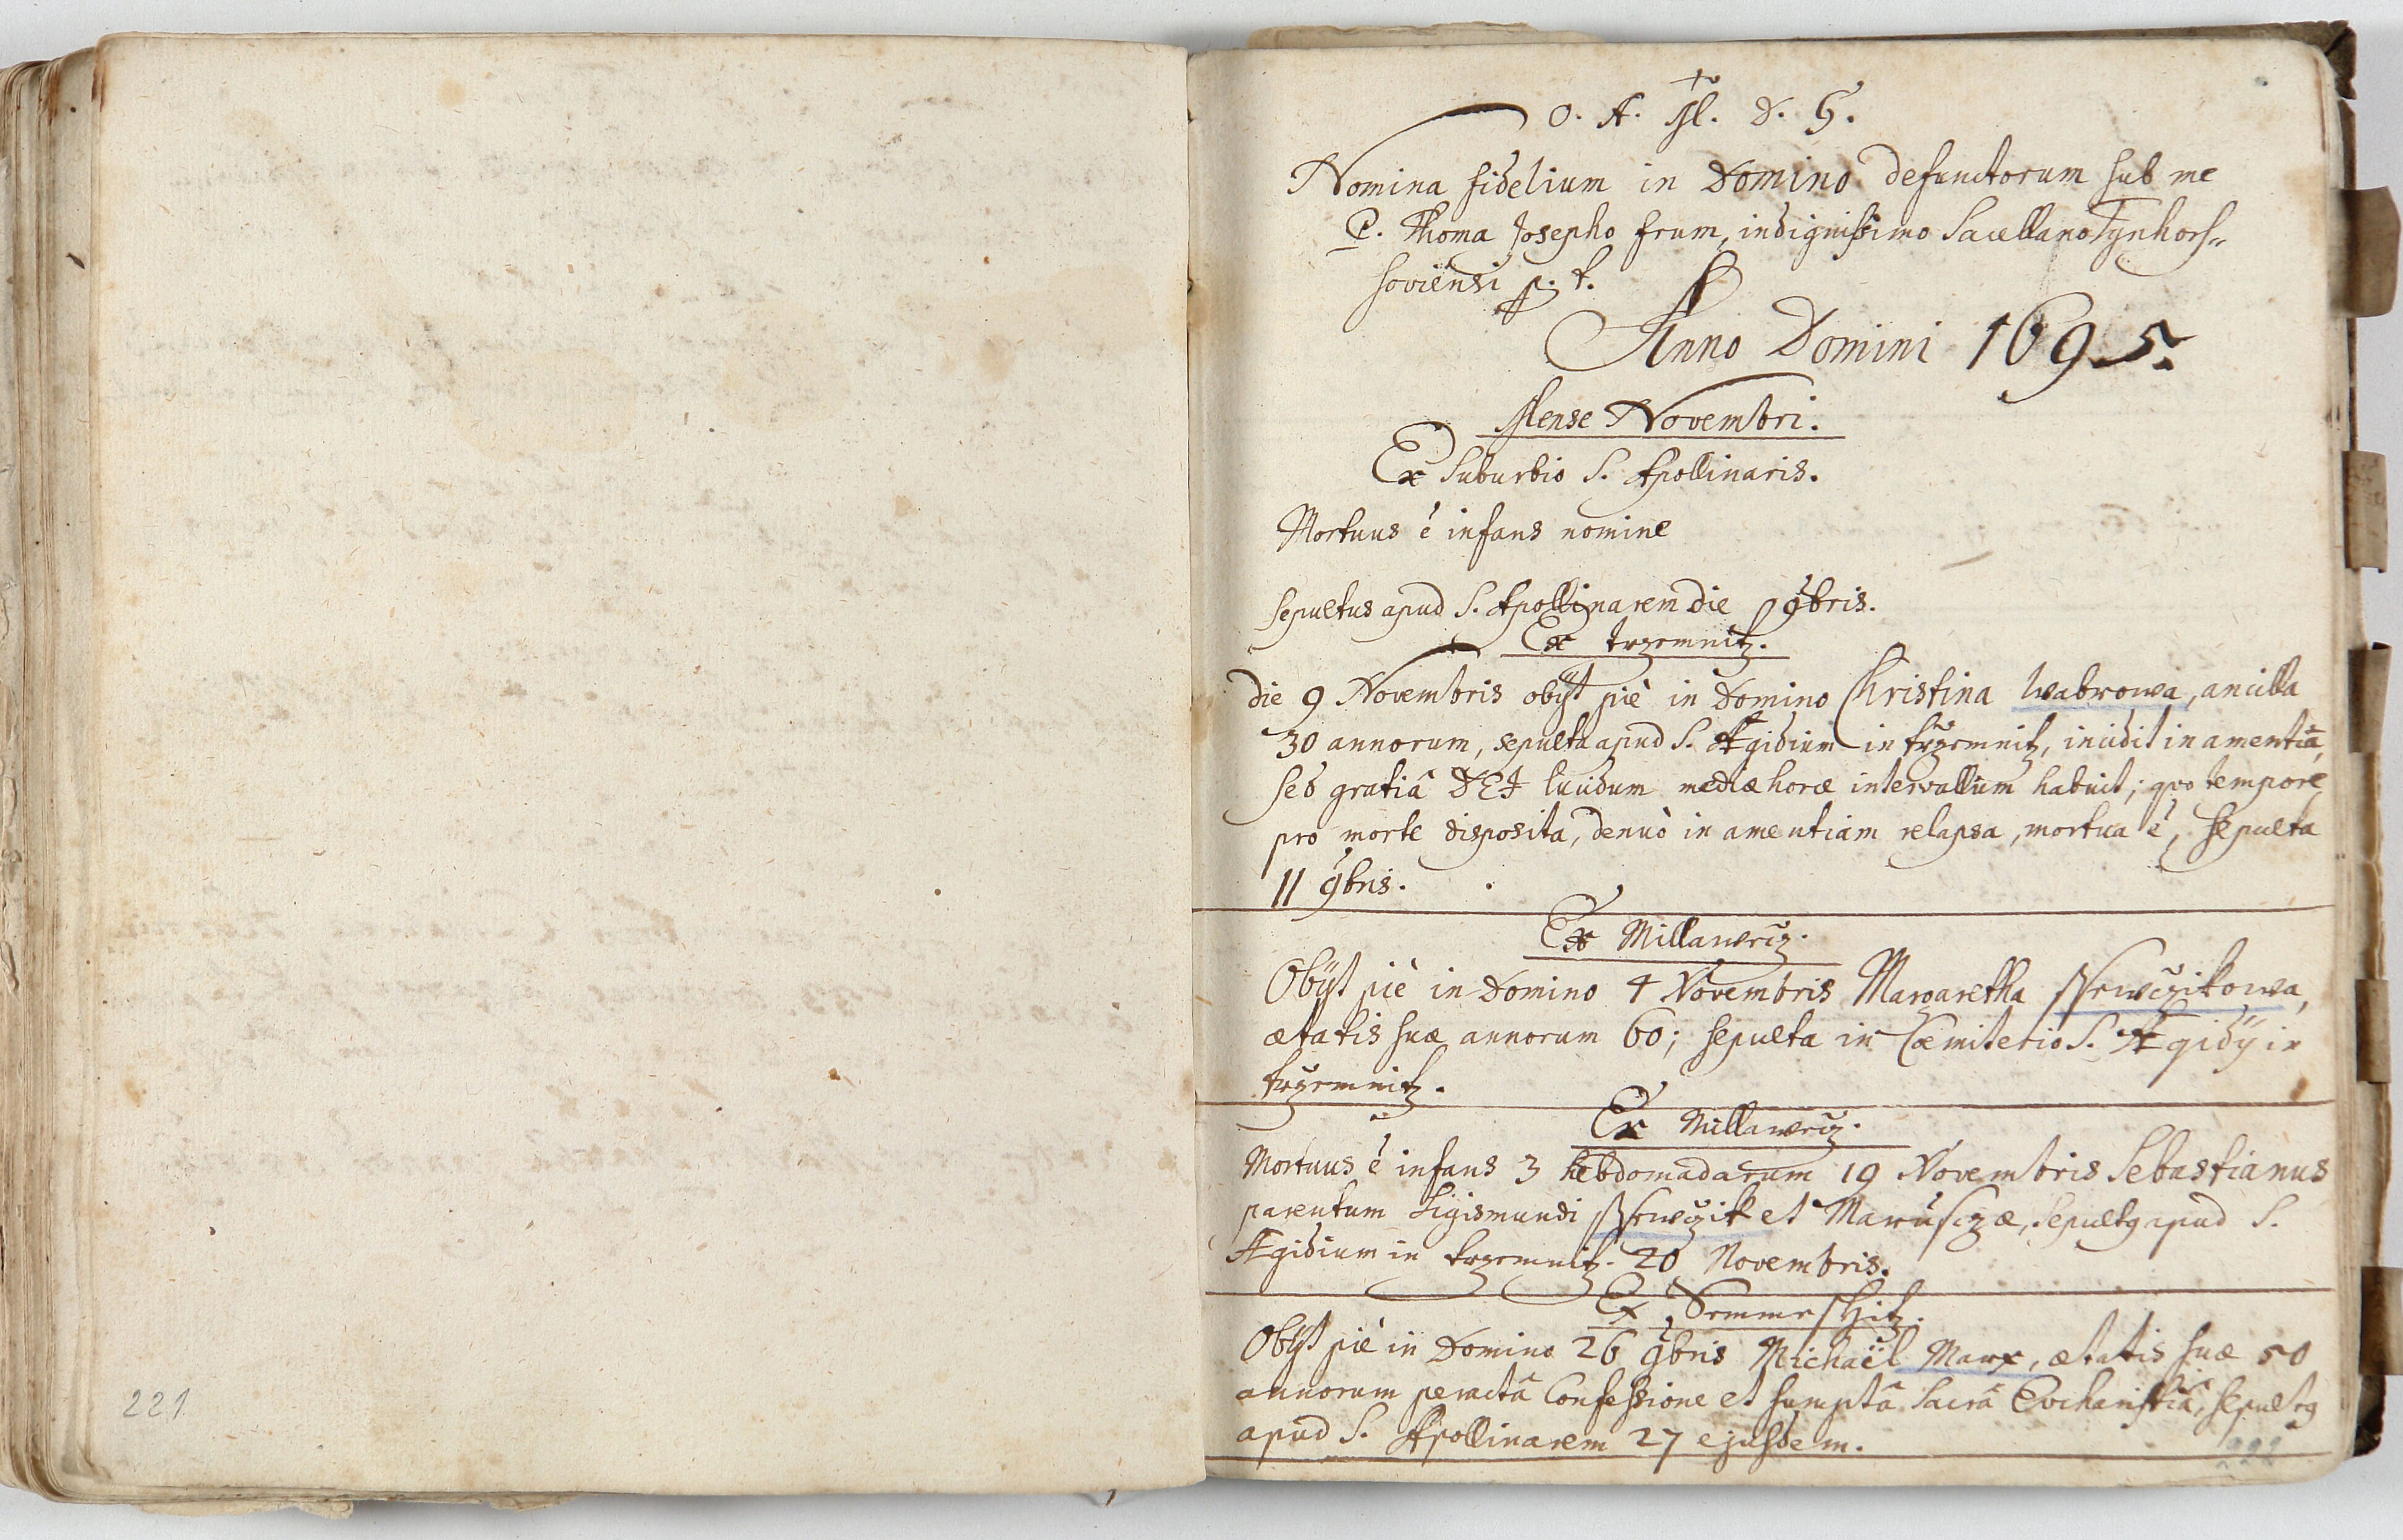 O. A. M. D. G.
Nomina fidelium in Domino defunctorum sub me
P. Thoma Josepho Frum, indignissimo Sacellano Tynhors-
soviensi p. t.
Anno Domini 1695.
Mense Novembri.
Ex Suburbio S. Apollinaris.
Mortuus ē infans nomine
sepultus apud S. Apollinarem die 9bris.
Ex trzemnitz.
die 9 Novembris obijt piè in Domino Christina Wabrowa, ancilla
30 annorum, sepulta apud S. Ægidium in trzemnitz, incidit in amentiā,
sed gratiâ DEI lucidum mediæ horæ intervallum habuit; quo tempore
pro morte disposita, denuò in amentiam relapsa, mortua ē, sepulta
11 9bris.
Ex Millawecz.
Obijt piè in Domino 4 Novembris Margaretha Ssewczikowa,
ætatis suæ annorum 60; sepulta in Cæmiterio S. Ægidij in
trzemnitz.
Ex Millawecz.
Mortuus ē infans 3 hebdomadarum 19 Novembris Sebastianus
parentum Sigismundi Ssewczik et Marusczæ, sepultg apud S.
Ægidium in trzemnitz. 20 Novembris.
Ex Semmeschitz.
Obijt piè in Domino 26 9bris Michaël Marx, ætatis suæ 50
annorum peractâ Confessione et sumptâ Sacrâ Eucharistiâ, sepultg
apud S. Apollinarem 27 ejusdem.
221
222